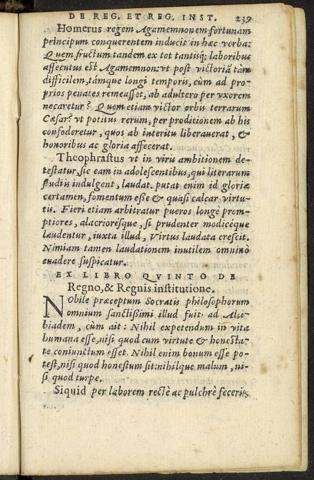 DE REG. ET REG. INST. 239
Homerus regem Agamemnonem fortunam
principum conquerentem inducit in hæc verba:
Quem fructum tandem ex tot tantisq; laboribus
assecutus est Agamemnon: vt post victoriã tàm
difficilem, támque longi temporis, cùm ad pro-
prios penates remeasset, ab adultero per vxorem
necaretur? Quem etiam victor orbis terrarum
Cæsar? vt potitus rerum, per proditionem ab his
confoderetur, quos ab interitu liberauerat, &
honoribus ac gloria affecerat.
Theophrastus vt in viris ambitionem de-
testatur, sic eam in adolescentibus, qui literarum
studiis indulgent, laudat. putat enim id gloriæ
certamen, fomentum esse & quasi calcar virtu-
tis. Fieri etiam arbitratur pueros longè prom-
ptiores, alacrioresque, si prudenter modicéque
laudentur, iuxta illud, Virtus laudata crescit.
Nimiam tamen laudationem inutilem omninò
euadere suspicatur.
EX LIBRO QVINTO DE
Regno, & Regnis institutione.
Nobile præceptum Socratis philosophorum
omnium sanctissimi illud fuit ad Alci-
biadem, cùm ait: Nihil expetendum in vita
humana esse, nisi quod cum virtute & honesta-
te coniunctum esset. Nihil enim bonum esse po-
test, nisi quod honestum sit: nihilque malum, ni-
si quod turpe.
Siquid per laborem rectè ac pulchrè feceris,